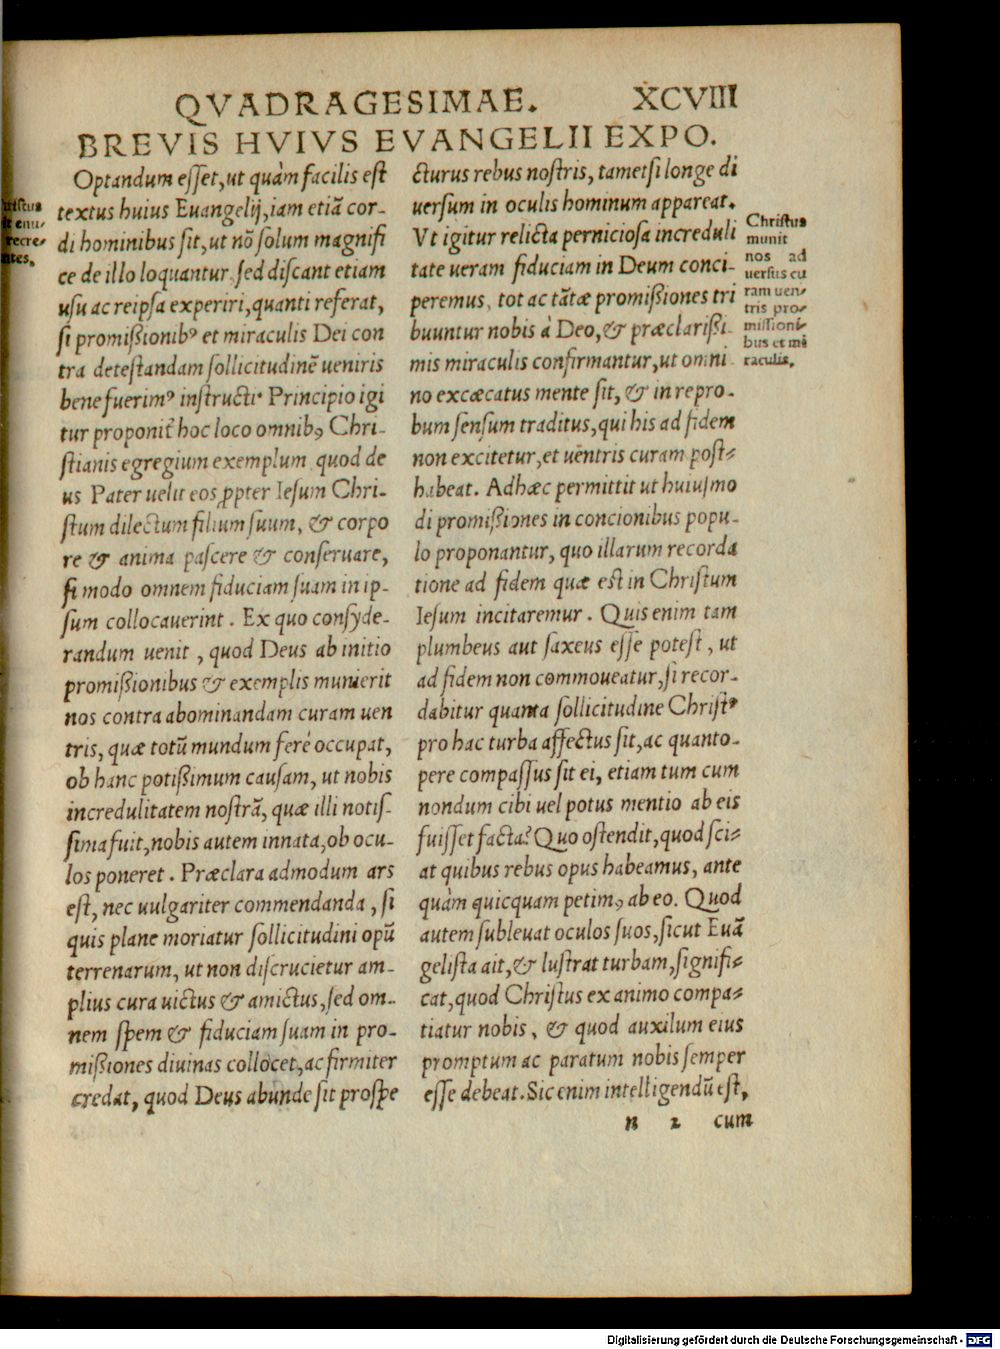 QVADRAGESIMAE. XCVIII
BREVIS HVIVS EVANGELII EXPO.
Optandum eſſet, ut quàm facilis eſt
textus huius Euangelij, iam etiã cor-
di hominibus ſit, ut nõ ſolum magnifi
ce de illo loquantur ſed diſcant etiam
uſu ac reipſa experiri, quanti referat,
ſi promiſſionibꝰ et miraculis Dei con
tra deteſtandam ſollicitudinẽ ueniris
bene fuerimꝰ inſtructi. Principio igi
tur proponit̃ hoc loco omnibꝰ Chri-
ſtianis egregium exemplum quod de
us Pater uelit eos ꝓpter Ieſum Chri-
ſtum dilectum filium ſuum, & corpo
re & anima paſcere & conſeruare,
ſi modo omnem fiduciam ſuam in ip-
ſum collocauerint. Ex quo conſyde-
randum uenit, quod Deus ab initio
promiſſionibus & exemplis munierit
nos contra abominandam curam uen
tris, quæ totũ mundum ferè occupat,
ob hanc potiſſimum cauſam, ut nobis
incredulitatem noſtrã, quæ illi notiſ-
ſima fuit, nobis autem innata, ob ocu-
los poneret. Præclara admodum ars
eſt, nec uulgariter commendanda, ſi
quis plane moriatur ſollicitudini opũ
terrenarum, ut non diſcrucietur am-
plius cura uictus & amictus, ſed om-
nem ſpem & fiduciam ſuam in pro-
miſſiones diuinas collocet, ac firmiter
credat, quod Deus abunde ſit proſpe
cturus rebus noſtris, tametſi longe di
uerſum in oculis hominum appareat.
Vt igitur relicta pernicioſa increduli
tate ueram fiduciam in Deum conci-
peremus, tot ac tãtæ promiſſiones tri
buuntur nobis à Deo, & præclariſſi-
mis miraculis confirmantur, ut omni
no excæcatus mente ſit, & in repro-
bum ſenſum traditus, qui his ad fidem
non excitetur, et uẽntris curam poſt-
habeat. Adhæc permittit ut huiuſmo
di promiſſiones in concionibus popu-
lo proponantur, quo illarum recorda
tione ad fidem quæ eſt in Chriſtum
Ieſum incitaremur. Quis enim tam
plumbeus aut ſaxeus eſſe poteſt, ut
ad fidem non commoueatur, ſi recor-
dabitur quanta ſollicitudine Chriſtꝰ
pro hac turba affectus ſit, ac quanto-
pere compaſſus ſit ei, etiam tum cum
nondum cibi uel potus mentio ab eis
fuiſſet facta? Quo oſtendit, quod ſci-
at quibus rebus opus habeamus, ante
quàm quicquam petimꝰ ab eo. Quod
autem ſubleuat oculos ſuos, ſicut Euã
geliſta ait, & luſtrat turbam, ſignifi-
cat, quod Chriſtus ex animo compa-
tiatur nobis, & quod auxilum eius
promptum ac paratum nobis ſemper
eſſe debeat. Sic enim intelligendũ eſt,
n 2 cum
Chriſtus
munit
nos ad
uerſus cu
ram uen-
tris pro-
miſſioni-
bus et mi
raculis.
Digitalisierung gefördert durch die Deutsche Forschungsgemeinschaft - DFG